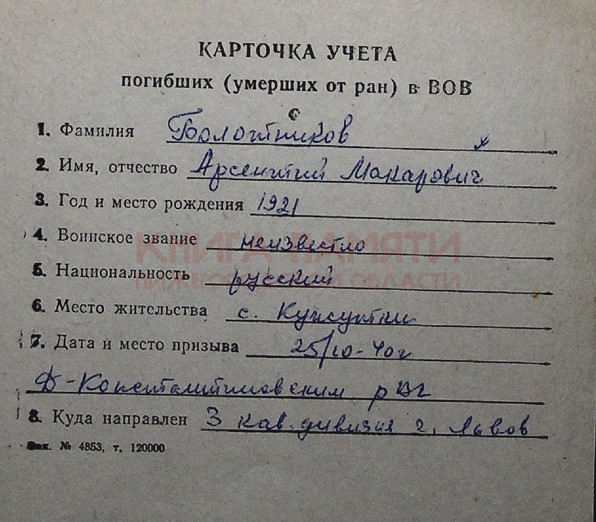 КАРТОЧКА УЧЕТА
погибших (умерших от ран) в ВОВ
1. Фамилия Болотников
2. Имя, отчество Арсентий Макарович
3. Год и место рождения 1921
4. Воинское звание неизвестно
КНИГА ПАМЯТИ
5. Национальность русский
НИЖЕГОРОДСКОЙ ОБЛАСТИ
6. Место жительства с.
7. Дата и место призыва 25/10-40г
Д-Константиновским рвк
8. Куда направлен 3 кав. дивизия г. Львов
Зак. № 4853, т. 120000